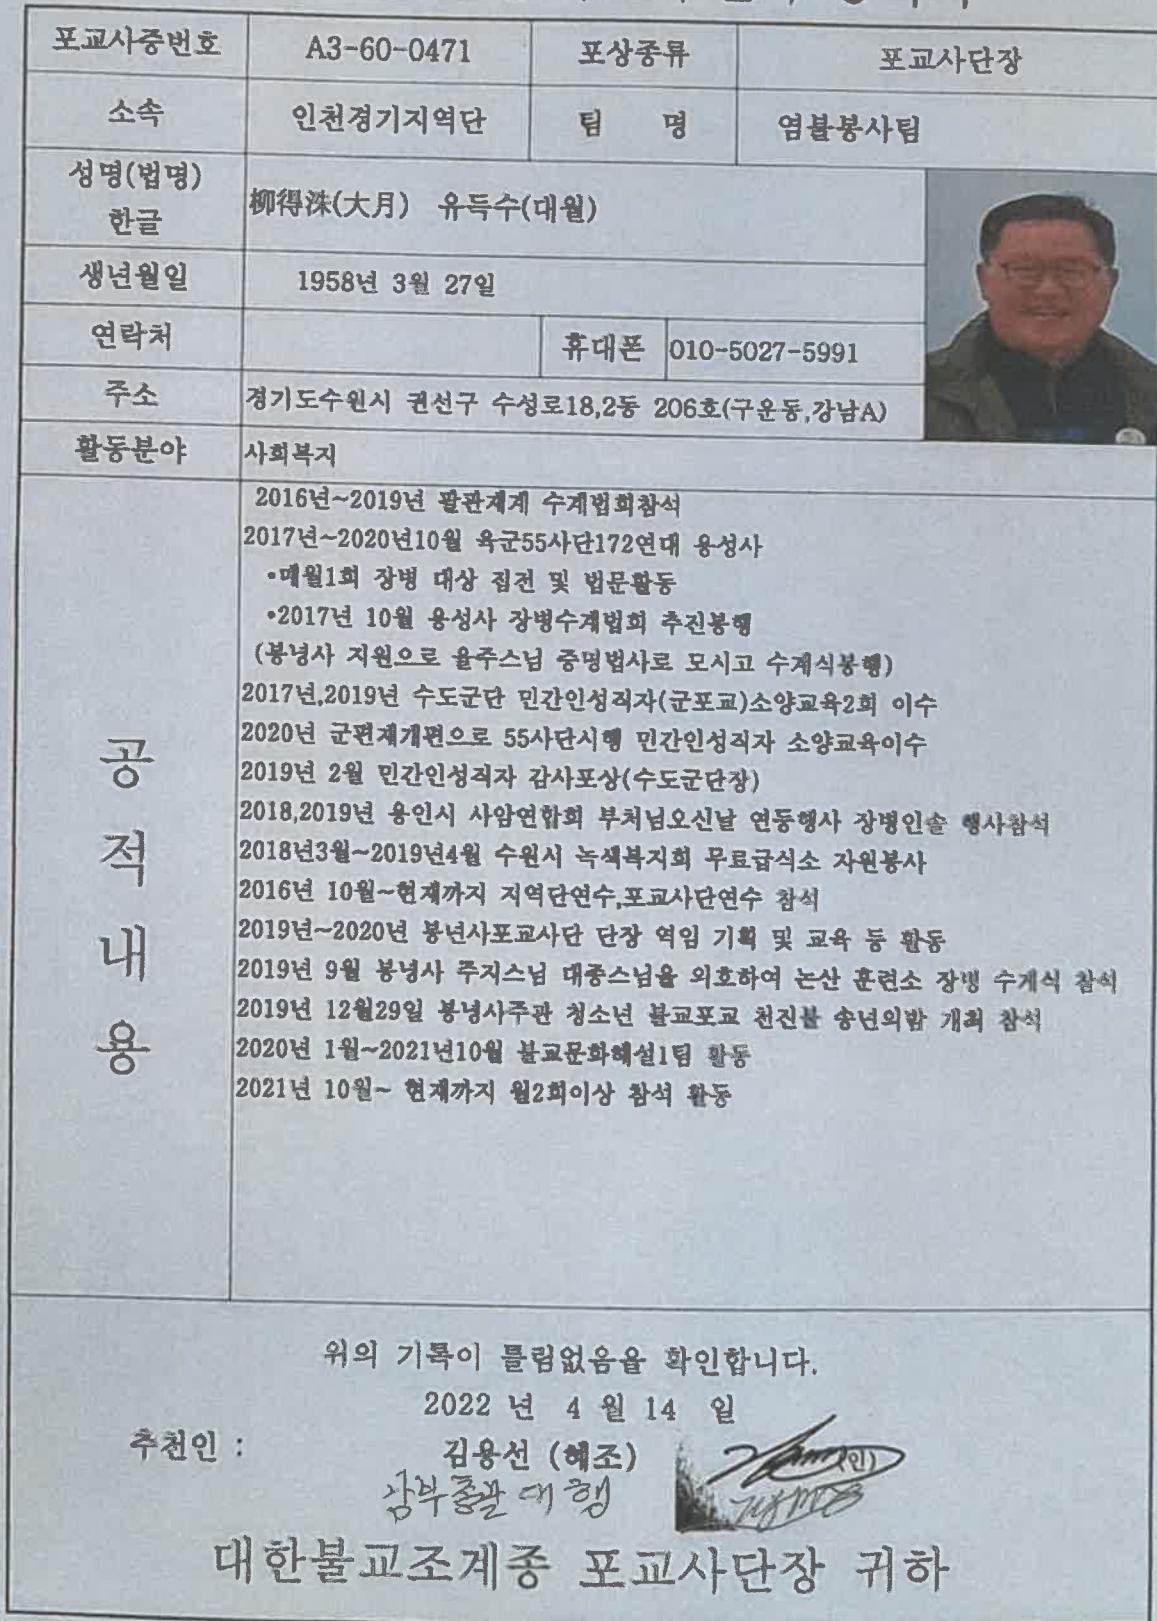 포교사증번호 A3-60-0471 포상종류 포교사단장
소속 인천경기지역단 팀 명 염불봉사팀
성명(법명) 한글 柳得洙(大月) 유득수(대월)
생년월일 1958년 3월 27일
연락처 휴대폰 010-5027-5991
주소 경기도수원시 권선구 수성로18,2동 206호(구운동,강남A)
활동분야 사회복지
공적내용
2016년~2019년 팔관재계 수계법회참석
2017년~2020년10월 육군55사단172연대 용성사
•매월1회 장병 대상 집전 및 법문활동
•2017년 10월 용성사 장병수계법회 추진봉행
(봉녕사 지원으로 율주스님 증명법사로 모시고 수계식봉행)
2017년,2019년 수도군단 민간인성직자(군포교)소양교육2회 이수
2020년 군편재개편으로 55사단시행 민간인성직자 소양교육이수
2019년 2월 민간인성직자 감사포상(수도군단장)
2018,2019년 용인시 사암연합회 부처님오신날 연등행사 장병인솔 행사참석
2018년3월~2019년4월 수원시 녹색복지회 무료급식소 자원봉사
2016년 10월~현재까지 지역단연수,포교사단연수 참석
2019년~2020년 봉년사포교사단 단장 역임 기획 및 교육 등 활동
2019년 9월 봉녕사 주지스님 대중스님을 외호하여 논산 훈련소 장병 수계식 참석
2019년 12월29일 봉녕사주관 청소년 불교포교 천진불 송년의밤 개최 참석
2020년 1월~2021년10월 불교문화해설1팀 활동
2021년 10월~ 현재까지 월2회이상 참석 활동
위의 기록이 틀림없음을 확인합니다.
2022 년 4 월 14 일
추천인 : 김용선 (혜조) (인)
남부총괄 대행
대한불교조계종 포교사단장 귀하